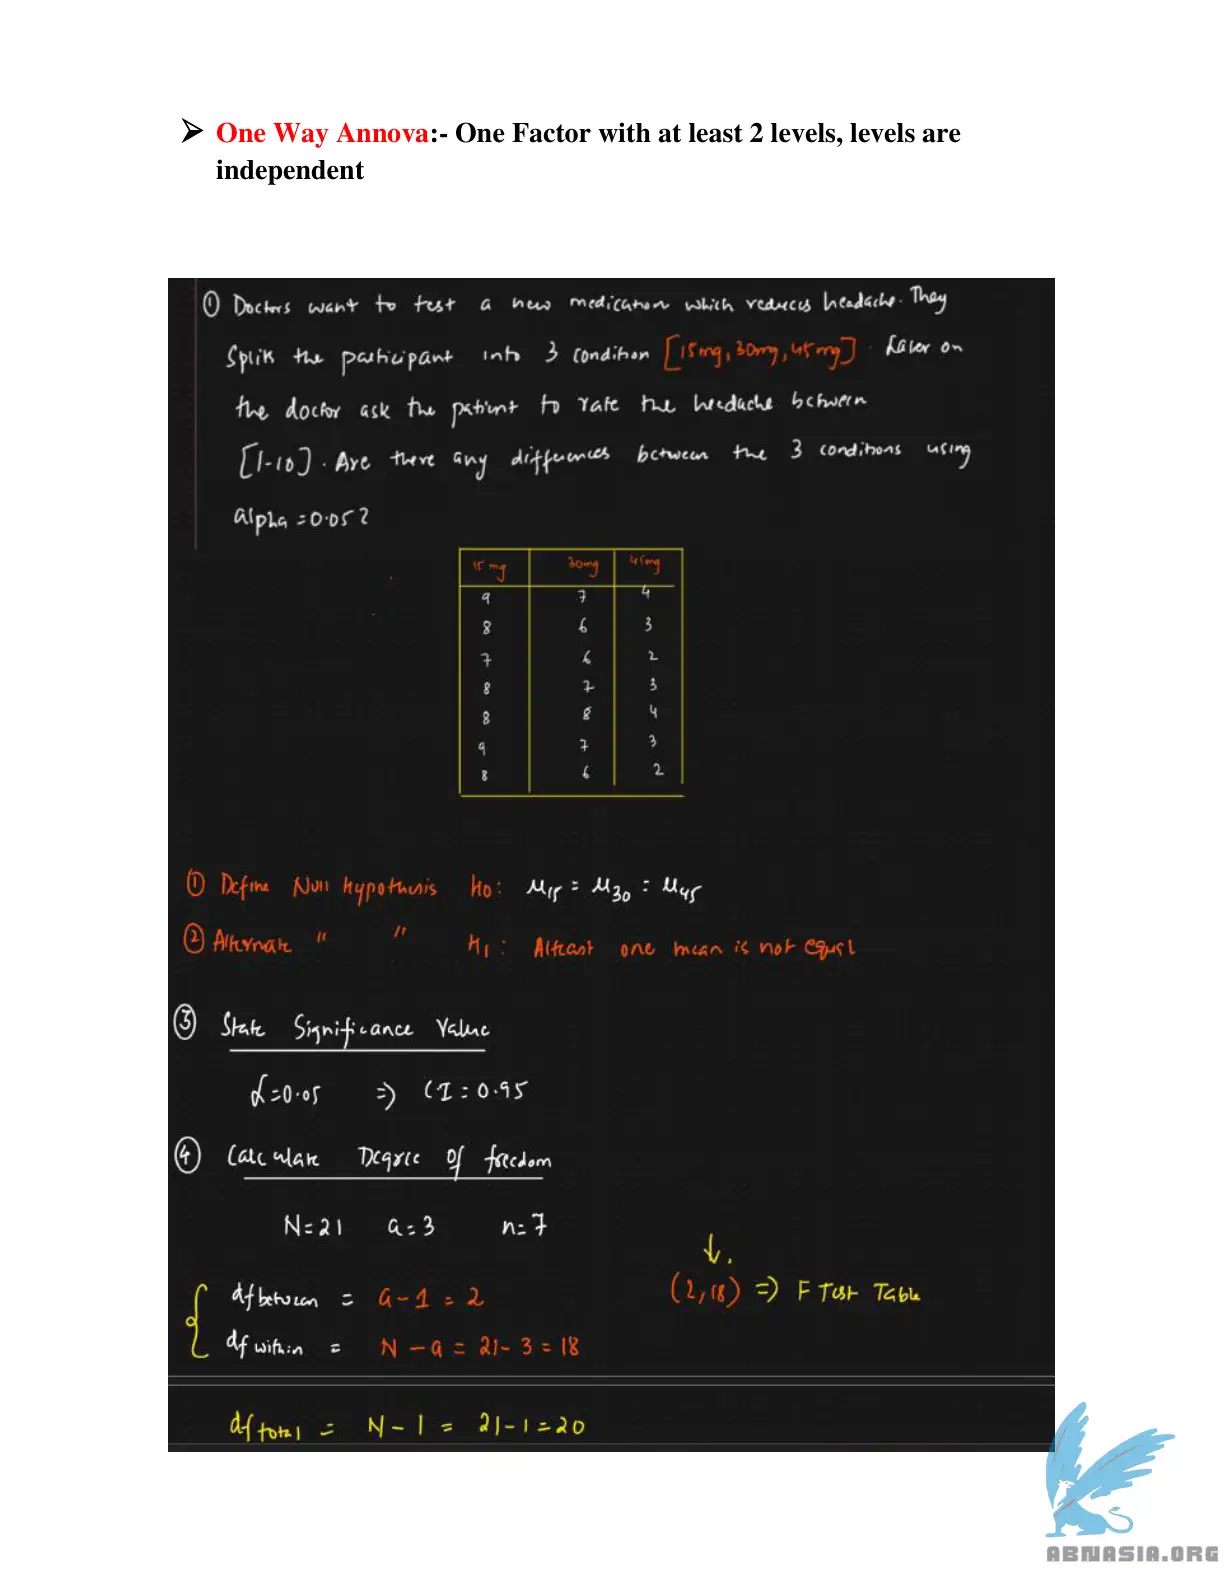 ➢ One Way Annova:- One Factor with at least 2 levels, levels are
independent
① Doctors want to test a new medication which reduces headache. They
Split the participant into 3 condition [15mg, 30mg, 45mg]. Later on
the doctor ask the patient to rate the headache between
[1-10]. Are there any differences between the 3 conditions using
alpha = 0.05?
15 mg 30mg 45mg
9 7 4
8 6 3
7 6 2
8 7 3
8 8 4
9 7 3
8 6 2
① Define Null Hypothesis H0: μ15 = μ30 = μ45
② Alternate " " H1: Atleast one mean is not equal
③ State Significance Value
α = 0.05 => CI = 0.95
④ Calculate Degree of freedom
N = 21 a = 3 n = 7
↓.
df between = a - 1 = 2 (2, 18) => F Test Table
df within = N - a = 21 - 3 = 18
df total = N - 1 = 21 - 1 = 20
ABNASIA.ORG